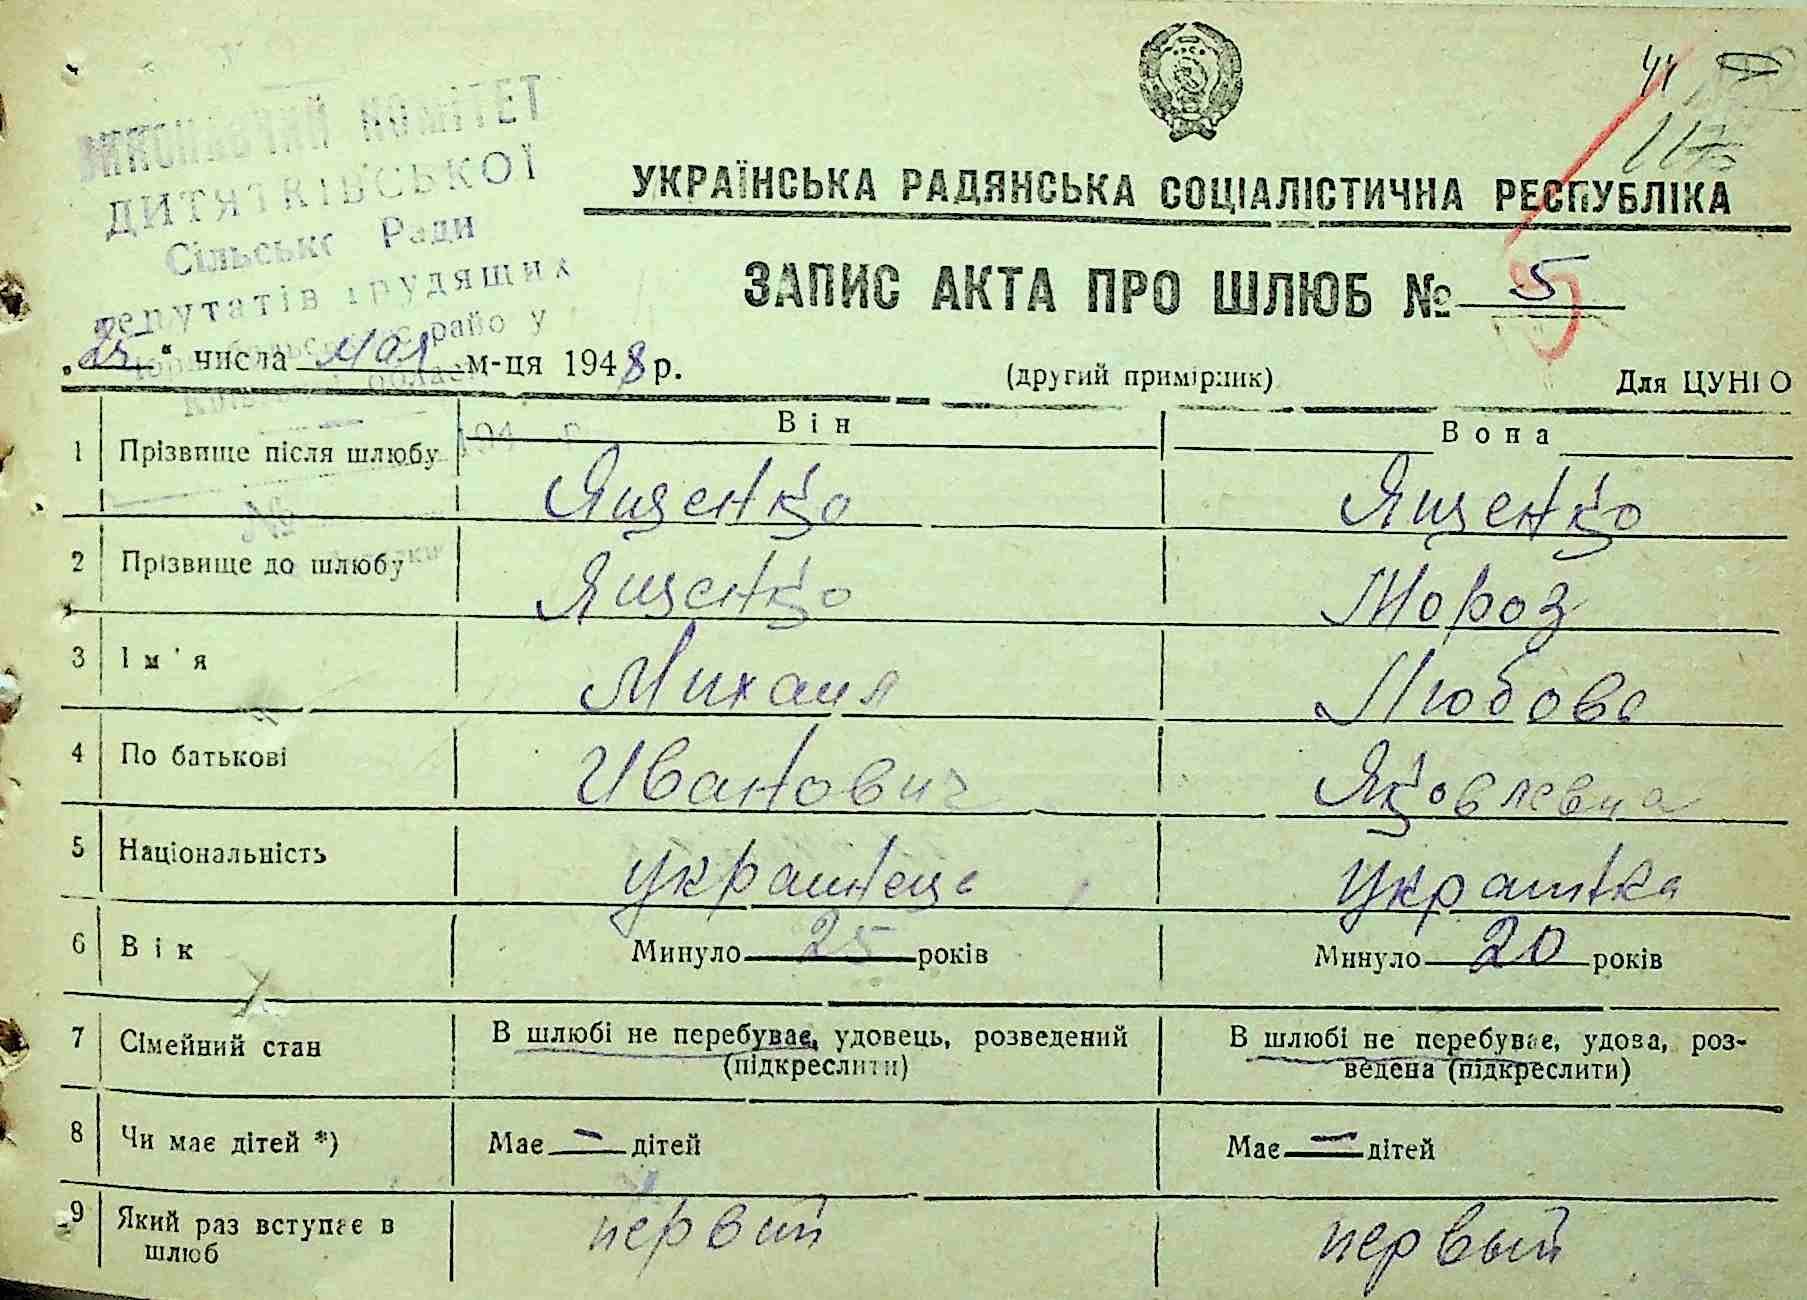 ВИКОНАВЧИЙ КОМІТЕТ
ДИТЯТКІВСЬКОЇ
Сільсько Ради
депутатів трудящих
44
117
УКРАЇНСЬКА РАДЯНСЬКА СОЦІАЛІСТИЧНА РЕСПУБЛІКА
ЗАПИС АКТА ПРО ШЛЮБ № 5
„25“ числа мая м-ця 1948 р. (другий примірник) Для ЦУНГО
Він Вона
1 Прізвище після шлюбу Ященко Ященко
2 Прізвище до шлюбу Ященко Мороз
3 Ім'я Михаил Любовь
4 По батькові Иванович Яковлевна
5 Національність украинець украинка
6 Вік Минуло 25 років Минуло 20 років
7 Сімейний стан В шлюбі не перебуває, удовець, розведений (підкреслити) В шлюбі не перебуває, удова, роз-
ведена (підкреслити)
8 Чи має дітей *) Має — дітей Має — дітей
9 Який раз вступає в первий первый
шлюб